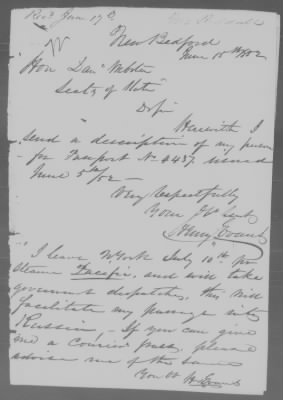 Recd June 17th
New Bedford
June 15th 1852
Hon Danl Webster
Secty of State
Dr Sir
Herewith I
send a description of my person
for Passport No 4437 issued
June 5th/52 —
Very Respectfully
Your Obt Servt
Henry
I leave NYork July 10th pr
Steamer Pacific, and will take
government dispatches, this will
facilitate my passage into
Russia, — If you can give
me a Courier pass, please
advise me of the same
Your Obt